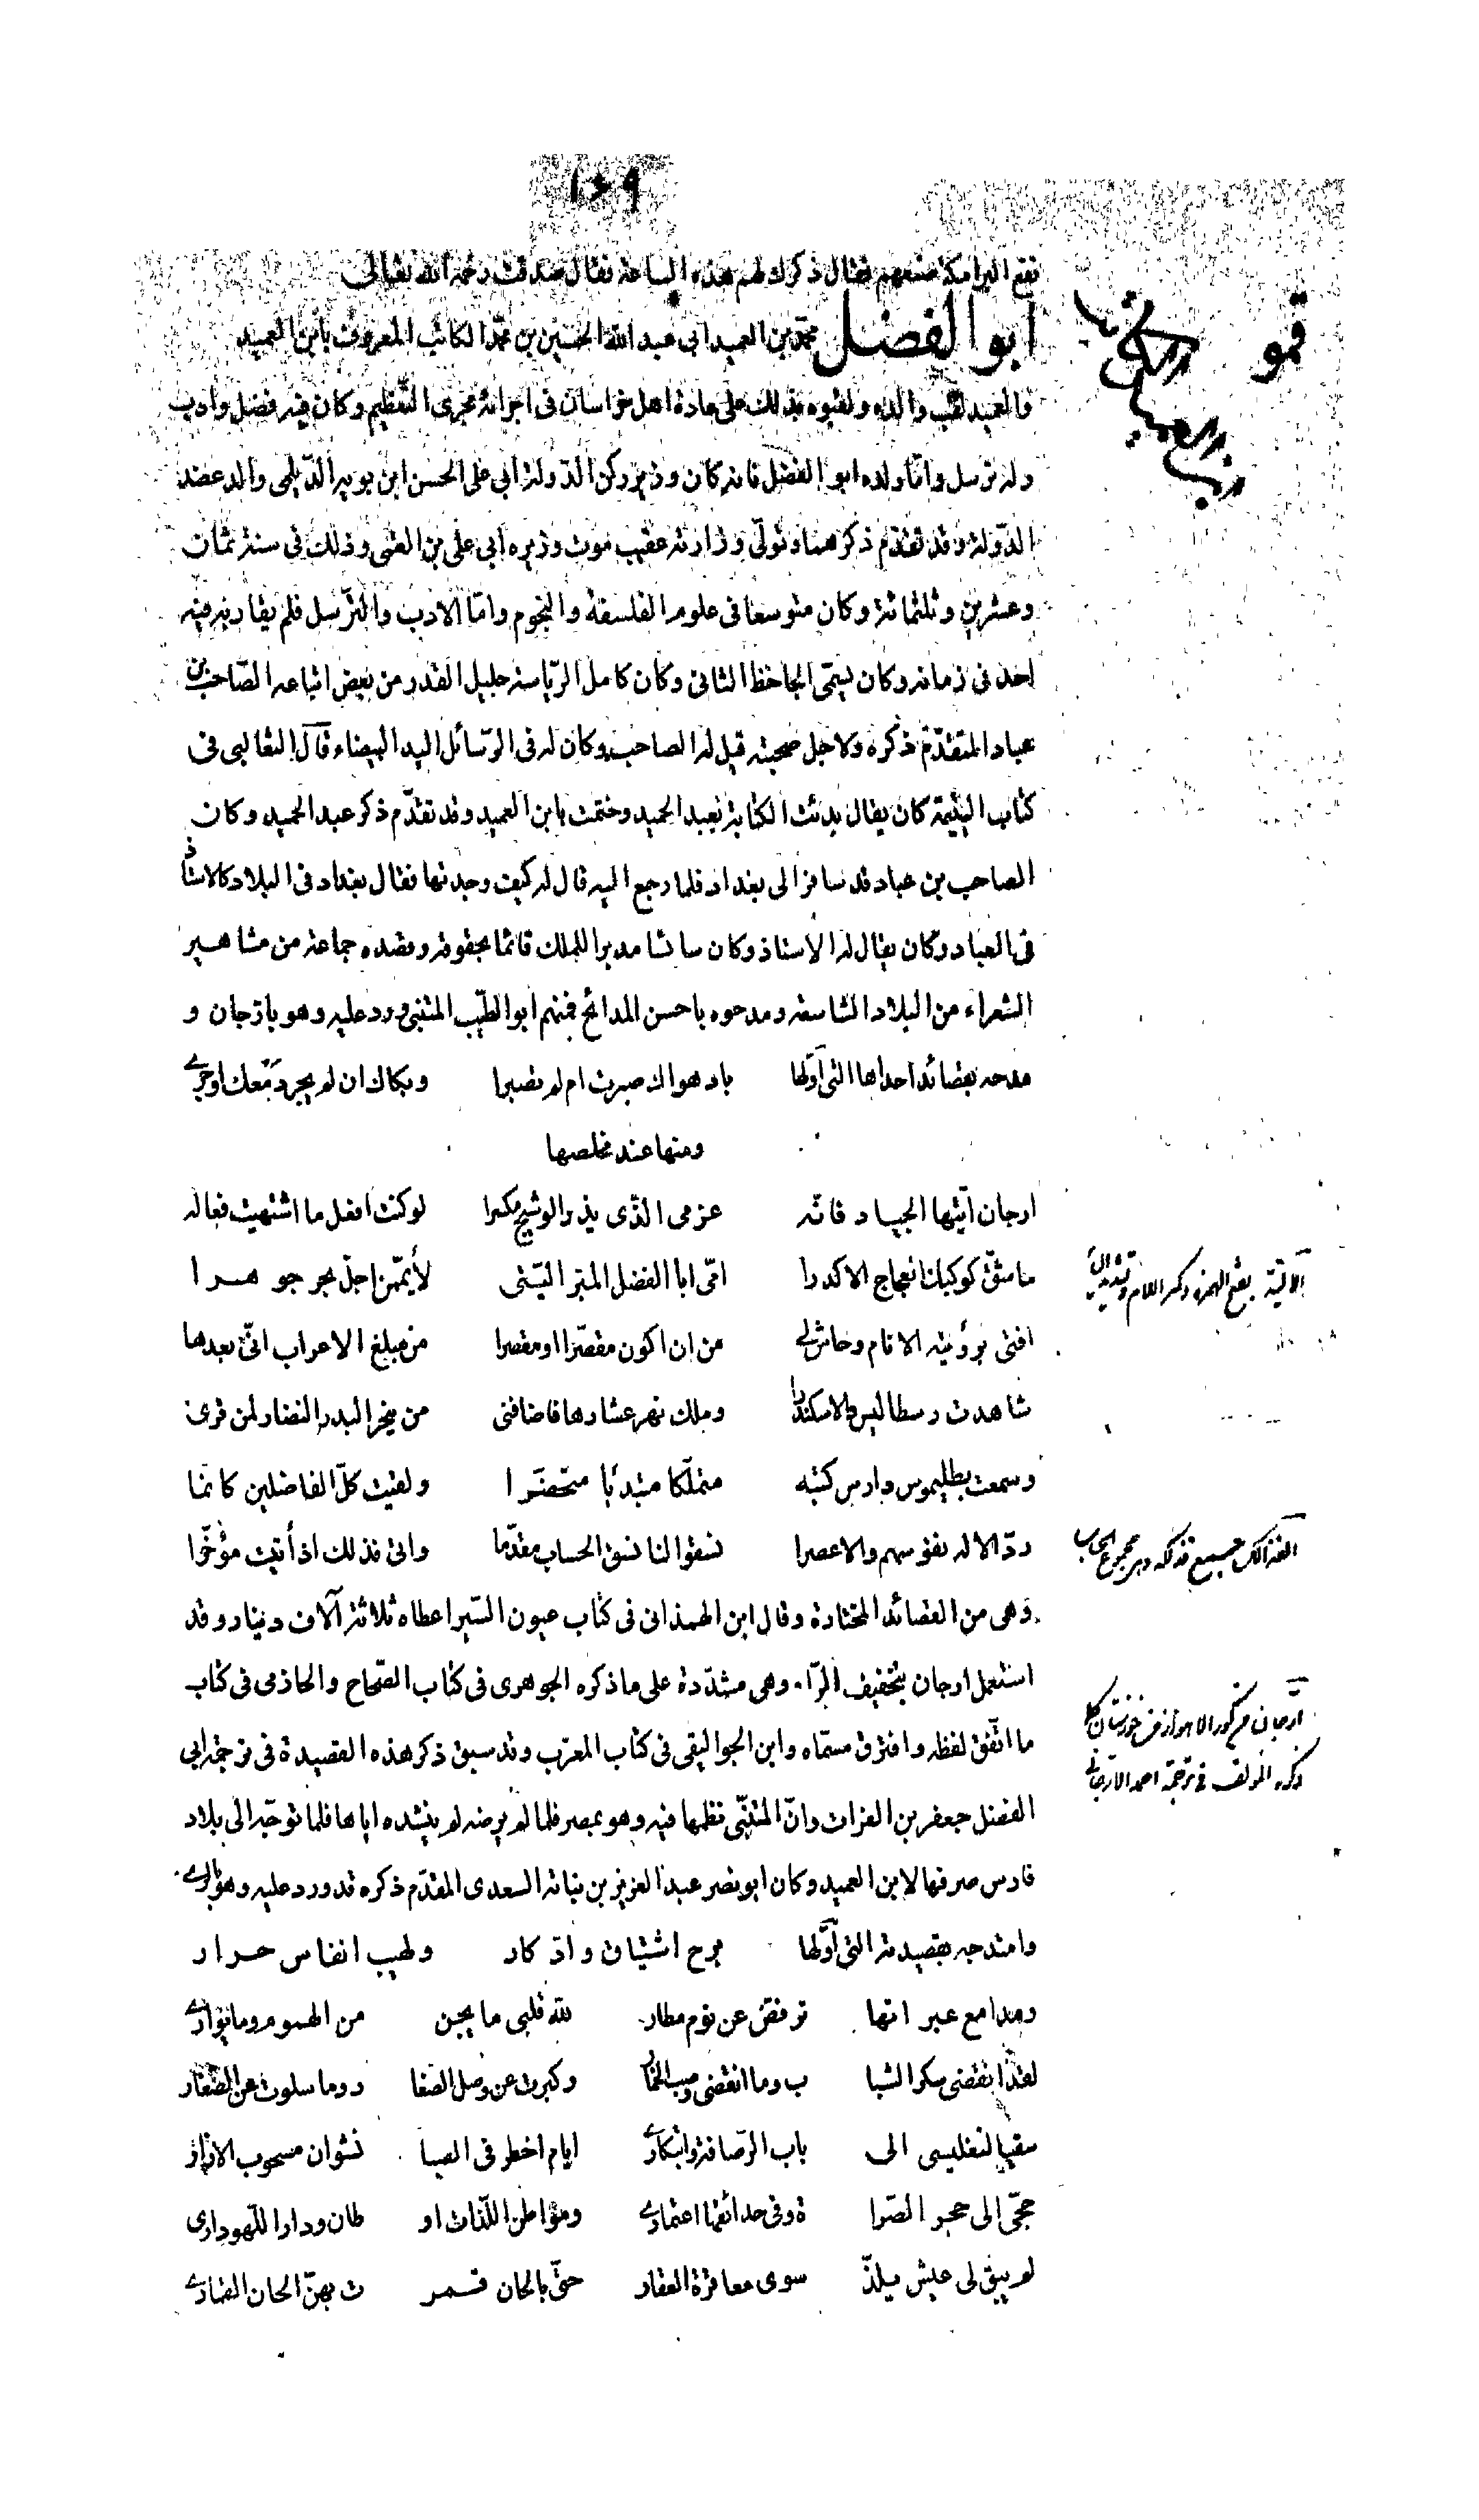 ١٥٩
نفع البرامكة صنعهم فقال ذكرك لهم هذه الساعة فقال صدقت رحمه الله تعالى
ابو الفضل محمّد بن العميد ابى عبد الله الحسين بن محمّد الكاتب المعروف بابن العميد
والعميد لقب والده ولقبوه بذلك على عادة اهل خراسان فى اجرائه مجرى التّعظيم وكان فيه فضل وادب
وله ترسل وامّا ولده ابو الفضل فانه كان وزير ركن الدّولة ابى على الحسن ابن بويه الدّيلمى والد عضد
الدّولة وقد تقدّم ذكرهما وتولّى وزارته عقيب موت وزيره ابى على بن القمى وذلك فى سنة ثمان
وعشرين وثلثمائة وكان متوسعا فى علوم الفلسفة والنجوم وامّا الادب والترّسل فلم يقاربه فيه
احد فى زمانه وكان يسمّى الجاحظ الثانى وكان كامل الرّياسة جليل القدر من بعض اتباعه الصّاحب بن
عباد المتقدّم ذكره ولاجل صحبته قيل له الصاحب وكان له فى الرّسائل اليد البيضاء قال الثعالبى فى
كتاب اليتيمة كان يقال بدئت الكتابة بعبد الحميد وختمت بابن العميد وقد تقدّم ذكر عبد الحميد وكان
الصاحب بن عباد قد سافر الى بغداد فلما رجع اليه قال له كيف وجدتها فقال بغداد فى البلاد كالاستاذ
فى العباد وكان يقال له الاستاذ وكان سائسا مدبرا للملك قائما بحقوقه وقصده جماعة من مشاهير
الشعراء من البلاد الشاسعة ومدحوه باحسن المدائح فمنهم ابو الطيّب المتنبى ورد عليه وهو بارّجان و
مدحه بقصائد احداها التى اوّلها باد هواك صبرت ام لم تصبرا وبكاك ان لم يجر دمعك او جرى
ومنها عند مخلصها
ارجان ايّتها الجياد فانّه عزمى الذى يذر الوشيج مكسرا لو كنت افعل ما اشتهيت فعاله
ما شقّ كوكبك العجاج الاكدرا امّى ابا الفضل المبرّ اليّتى لأيمّمن اجلّ بحر جوهرا
افتى برؤيته الانام وحاش لى من ان اكون مقصّرا او مقصرا من مبلغ الاعراب انّى بعدها
شاهدت رسطاليس والاسكندرا ومللت نحر عشارها فاضافنى من ينحر البدر النضار لمن قرى
وسمعت بطليموس دارس كتبه متملّكا متبدّيا متحضّرا ولقيت كلّ الفاضلين كانّما
ردّ الاله نفوسهم والاعصرا نسقوا لنا نسق الحساب مقدّما واتى فذلك اذ أتيت مؤخّرا
وهى من القصائد المختارة وقال ابن الهمذانى فى كتاب عيون السّير اعطاه ثلاثة آلاف دينار وقد
استعمل ارجان بتخفيف الرّاء وهى مشدّدة على ما ذكره الجوهرى فى كتاب الصّحاح والحازمى فى كتاب
ما اتّفق لفظه وافترق مسمّاه وابن الجواليقى فى كتاب المعرّب وقد سبق ذكر هذه القصيدة فى ترجمة ابى
الفضل جعفر بن الفرات وانّ المتنبّى نظمها فيه وهو بمصر فلما لم يرضه لم ينشده اياها فلما توجّه الى بلاد
فارس صرفها لابن العميد وكان ابو نصر عبد العزيز بن نباتة السعدى المقدّم ذكره قد ورد عليه وهو بالرى
وامتدحه بقصيدته التى اوّلها برح اشتياق وادّكار ولهيب انفاس حرار
ومدامع عبراتها ترفضّ عن نوم مطار لله قلبى ما يجن من الهموم وما يوارى
لقد انقضى سكر الشبا ب وما انقضى وصب الخمار وكبرت عن وصل الصغا ر وما سلوت عن الصّغار
سقيا لتغليسى الى باب الرّصافة وابتكارى ايام اخطر فى الصبا نشوان مسحوب الازار
حجّى الى حجر الصّرا ة وفى حدائقها اعتمارى ومواطن اللّذات او طانى ودار اللّهو دارى
لم يبق لى عيش يلذّ سوى معاقرة العقار حتّى بالحان قمر ت بهنّ الحان القمارى
الاليّة بفتح الهمزة وكسر اللام وتشديد الياء
ارّجان من كور الاهواز من خوزستان كما
ذكره المؤلف فى ترجمة احمد الارّجانى